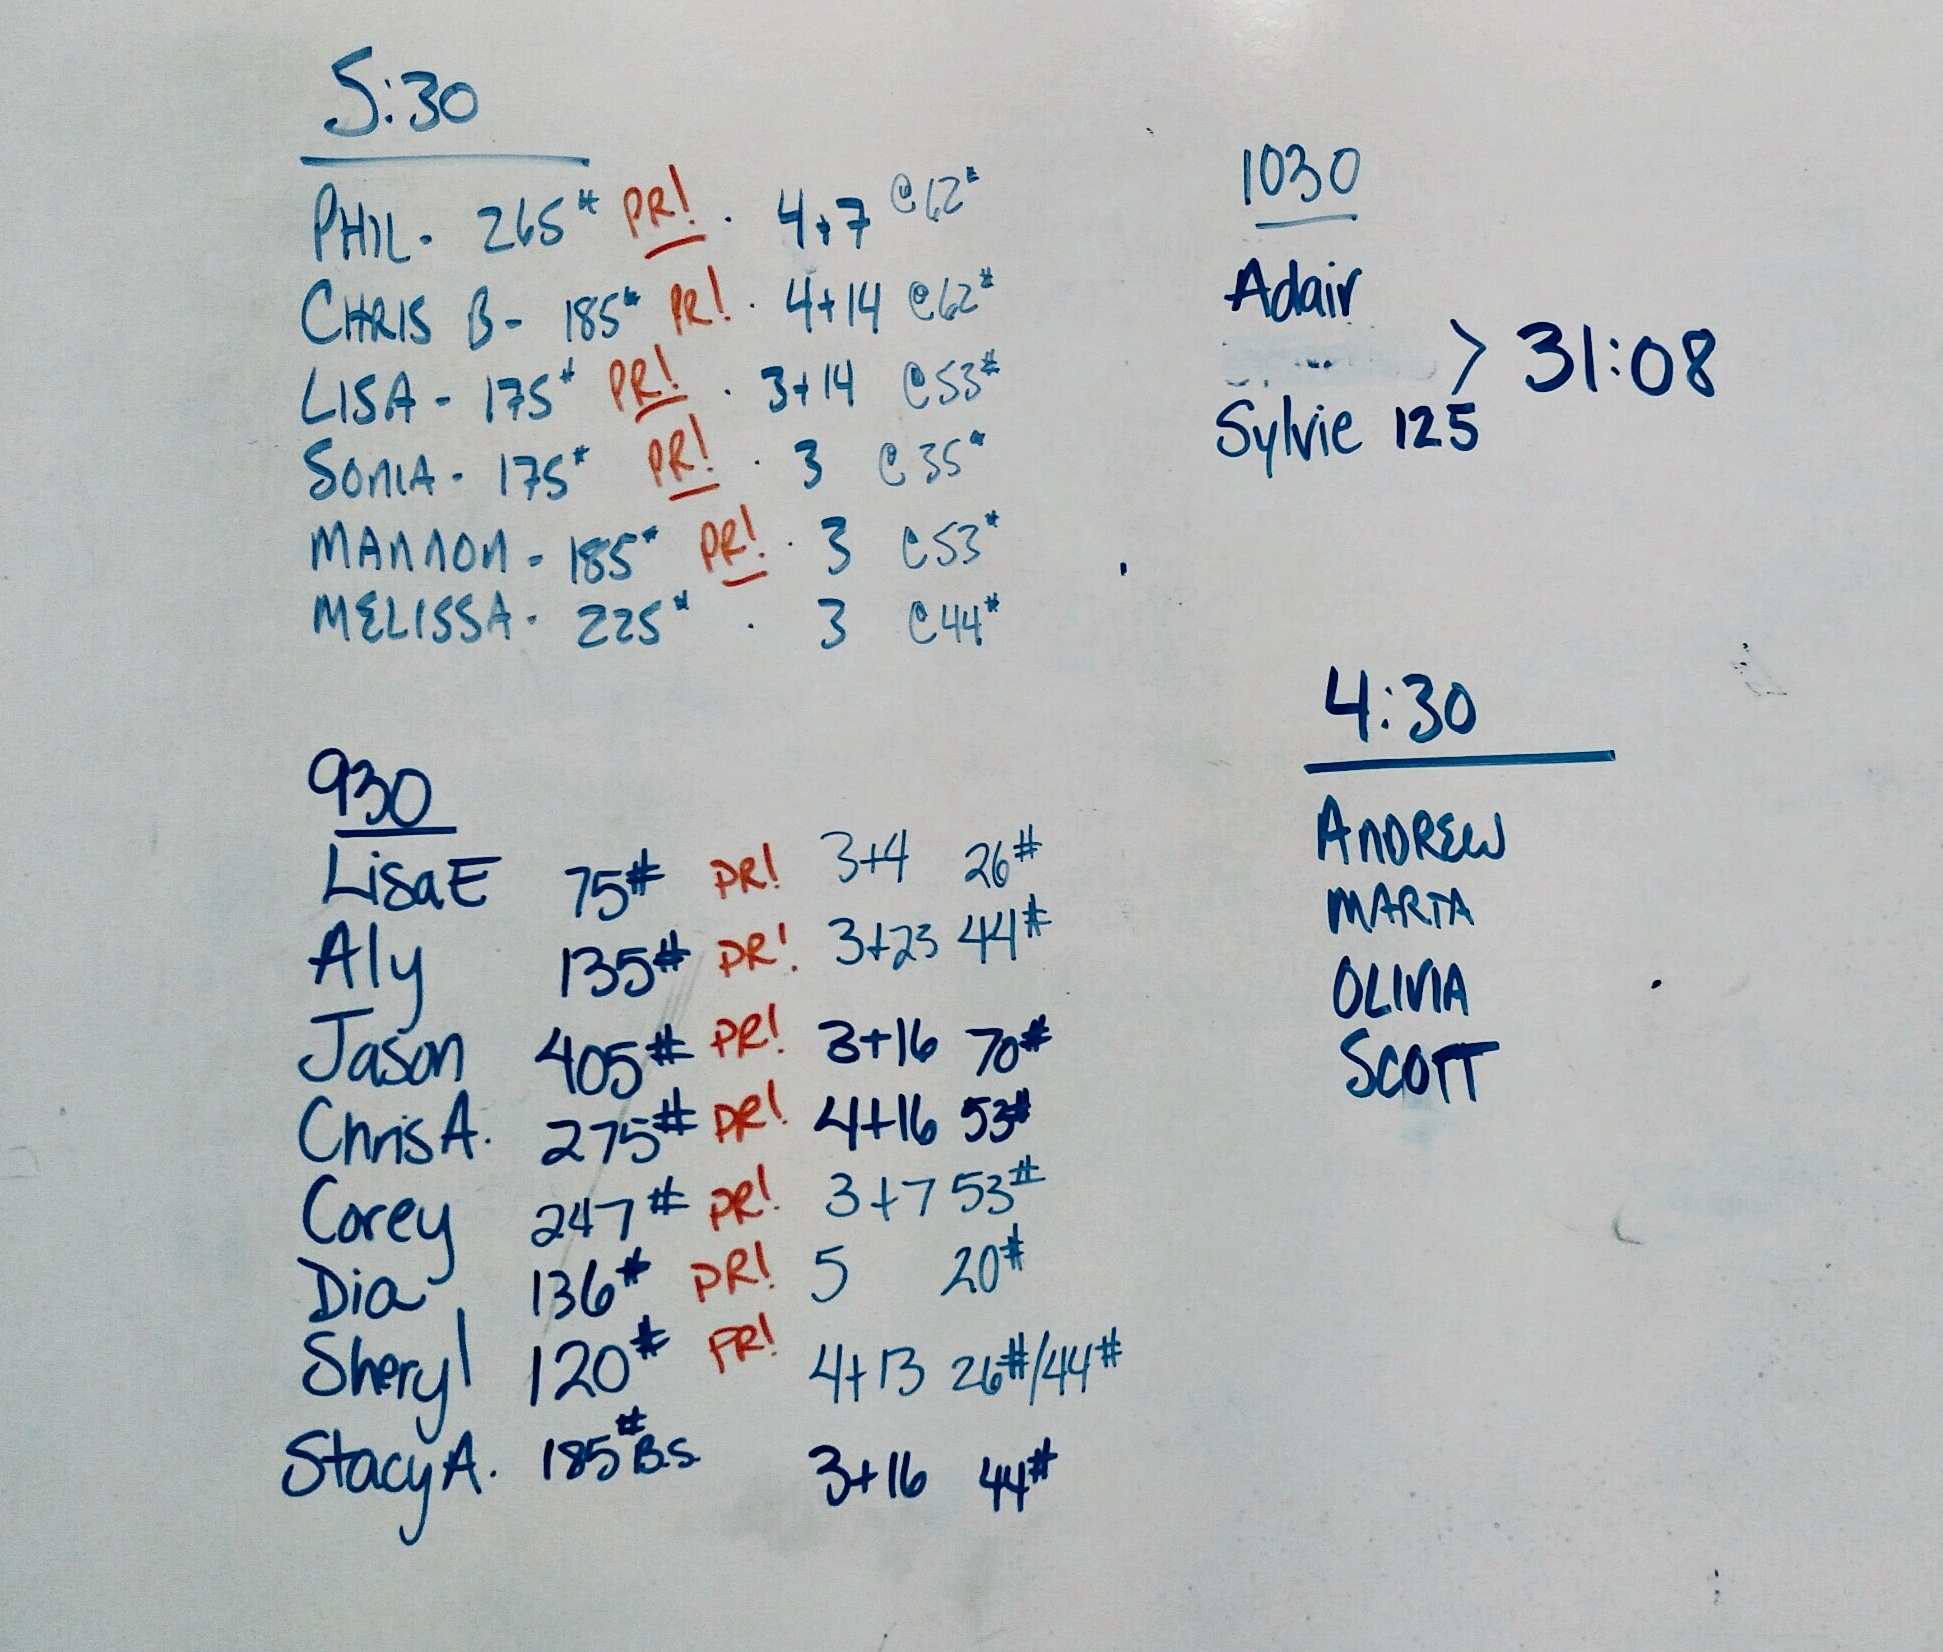 5:30
PHIL. 265# PR! . 4+7 @62#
CHRIS B- 185# PR! . 4+14 @62#
LISA - 175# PR! . 3+14 @53#
SONIA - 175# PR! . 3 @35#
MANNON - 185# PR! . 3 @53#
MELISSA - 225# . 3 @44#
930
Lisa E 75# PR! 3+4 26#
Aly 135# PR! 3+23 44#
Jason 405# PR! 3+16 70#
Chris A. 275# PR! 4+16 53#
Corey 247# PR! 3+7 53#
Dia 136# PR! 5 20#
Sheryl 120# PR! 4+13 26#/44#
Stacy A. 185# B.S. 3+16 44#
1030
Adair
> 31:08
Sylvie 125
4:30
ANDREW
MARTA
OLIVIA
SCOTT